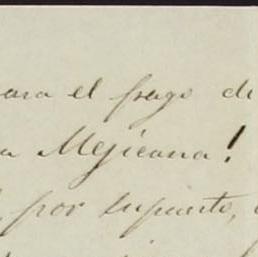 para el pago de
a Mejicana!
por supuesto,